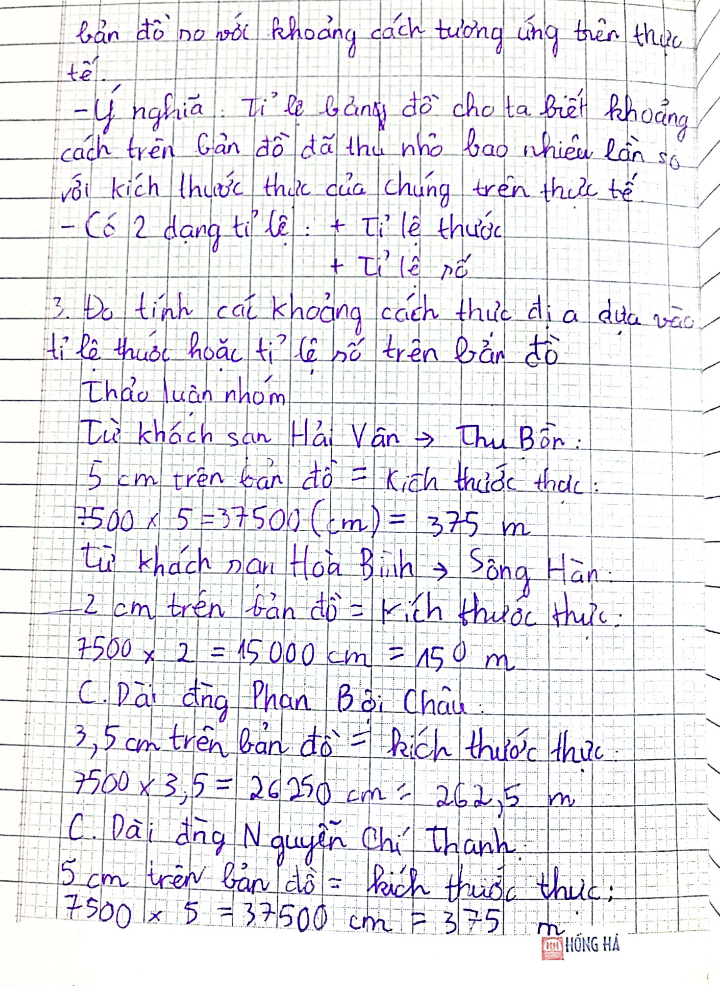 bản đồ no với khoảng cách tương ứng trên thực
tế.
- Ý nghĩa: Tỉ lệ bảng đồ cho ta biết khoảng
cách trên bản đồ đã thu nhỏ bao nhiêu lần so
với kích thước thực của chúng trên thực tế
- Có 2 dạng tỉ lệ: + Tỉ lệ thước
+ Tỉ lệ số
3. Đo tính các khoảng cách thực địa dựa vào
tỉ lệ thước hoặc tỉ lệ số trên bản đồ
Thảo luận nhóm
Từ khách sạn Hải Vân → Thu Bồn:
5 cm trên bản đồ = kích thước thực:
7500 x 5 = 37500 (cm) = 375 m
Từ khách sạn Hoà Bình → Sông Hàn:
2 cm trên bản đồ = kích thước thực:
7500 x 2 = 15000 cm = 150 m
C. Dài đng Phan Bội Châu:
3,5 cm trên bản đồ = kích thước thực:
7500 x 3,5 = 26250 cm = 262,5 m
C. Dài đng Nguyễn Chí Thanh:
5 cm trên bản đồ = kích thước thực:
7500 x 5 = 37500 cm = 375 m
HH HỒNG HÀ